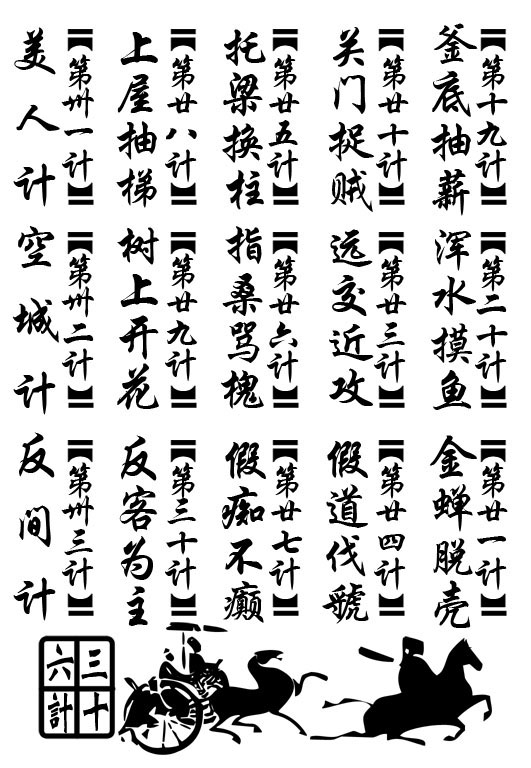 【第十九计】
釜底抽薪
【第二十计】
浑水摸鱼
【第廿一计】
金蝉脱壳
【第廿十计】
关门捉贼
【第廿三计】
远交近攻
【第廿四计】
假道伐虢
【第廿五计】
托梁换柱
【第廿六计】
指桑骂槐
【第廿七计】
假痴不癫
【第廿八计】
上屋抽梯
【第廿九计】
树上开花
【第三十计】
反客为主
【第卅一计】
美人计
【第卅二计】
空城计
【第卅三计】
反间计
三十
六計